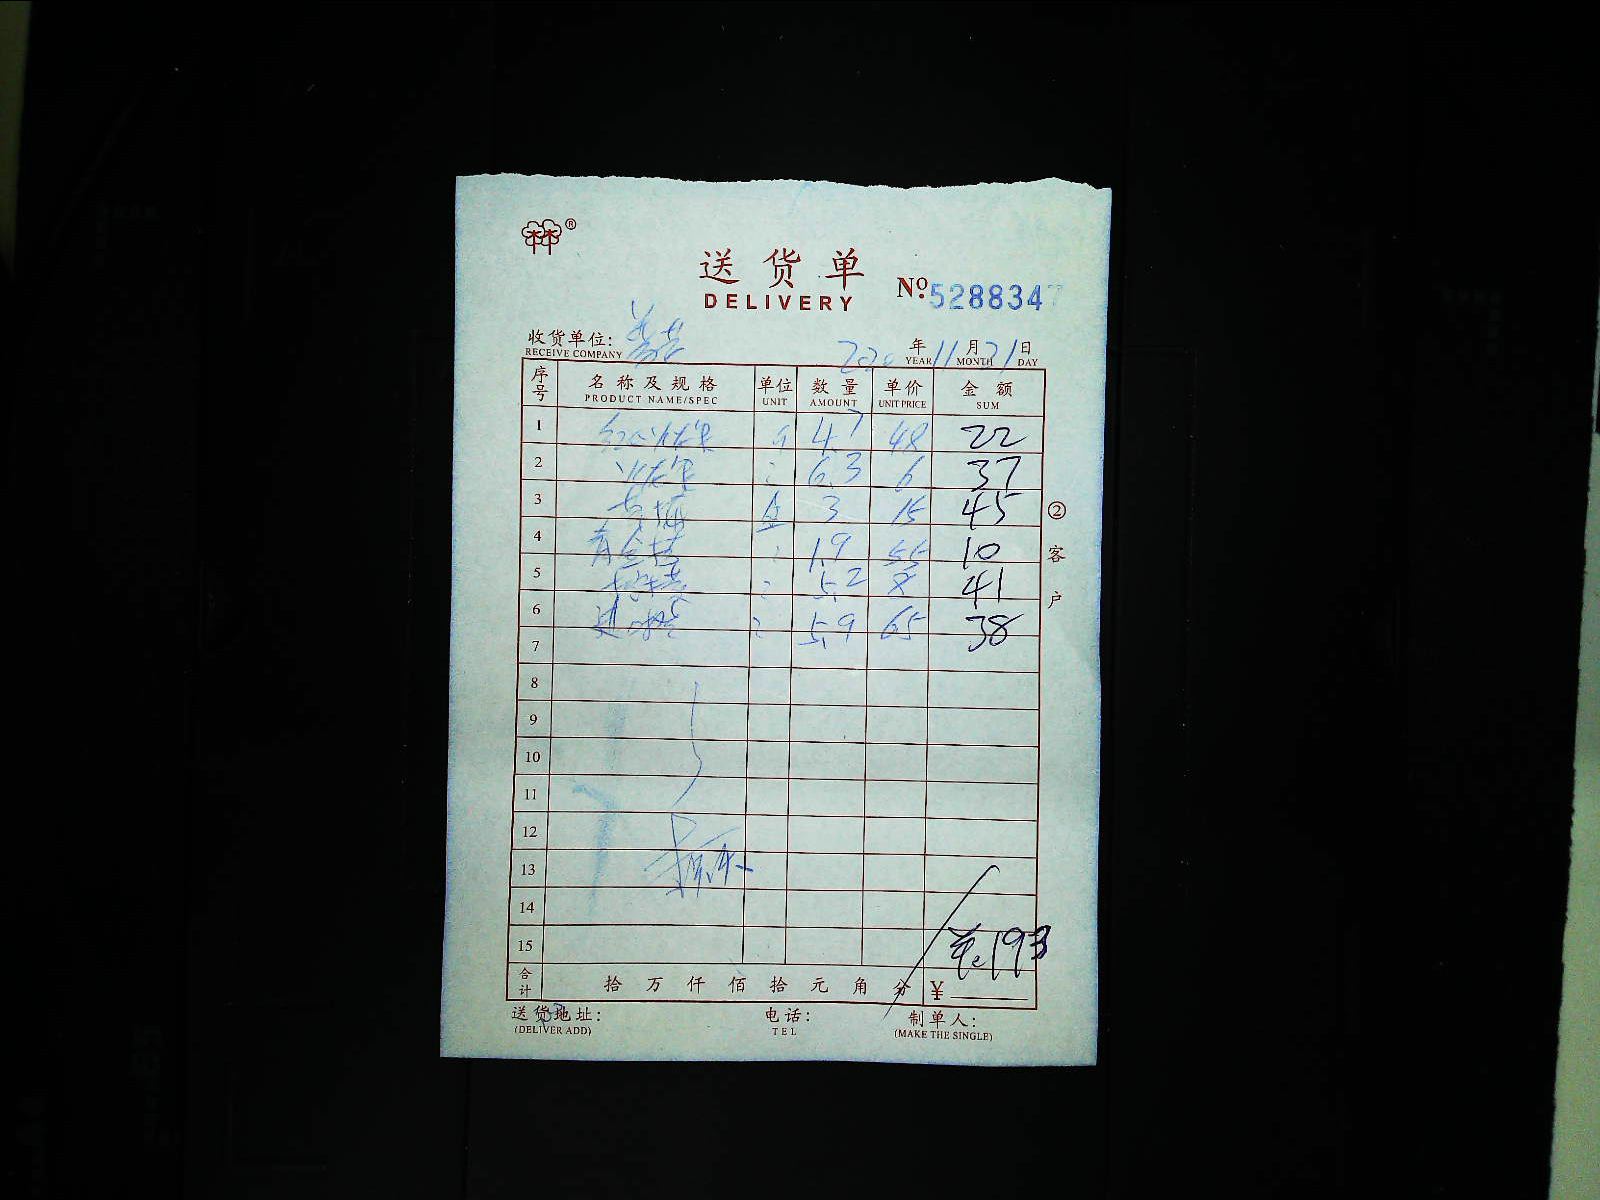 送货单
DELIVERY
№ 5288347
收货单位:
RECEIVE COMPANY
2020 年 11 月 21 日
YEAR MONTH DAY
序号 名称及规格 单位 数量 单价 金额
PRODUCT NAME/SPEC UNIT AMOUNT UNIT PRICE SUM
1 4.7 48 22
2 6.3 6 37
3 盒 3 15 45
4 1.9 55 10
5 5.2 8 41
6 5.9 65 38
7
8
9
10
11
12
13
14
15 ¥193
合计 拾 万 仟 佰 拾 元 角 分 ¥
②客户
送货地址: 电话: 制单人:
(DELIVER ADD) TEL (MAKE THE SINGLE)